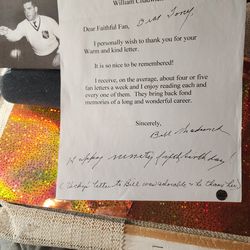 William Chadwick
Dear Faithful Fan,
I personally wish to thank you for your
Warm and kind letter.
It is so nice to be remembered!
I receive, on the average, about four or five
fan letters a week and I enjoy reading each and
every one of them. They bring back fond
memories of a long and wonderful career.
Sincerely,
Bill Chadwick
Happy ninety fifth birthday!
letter to Bill was adorable